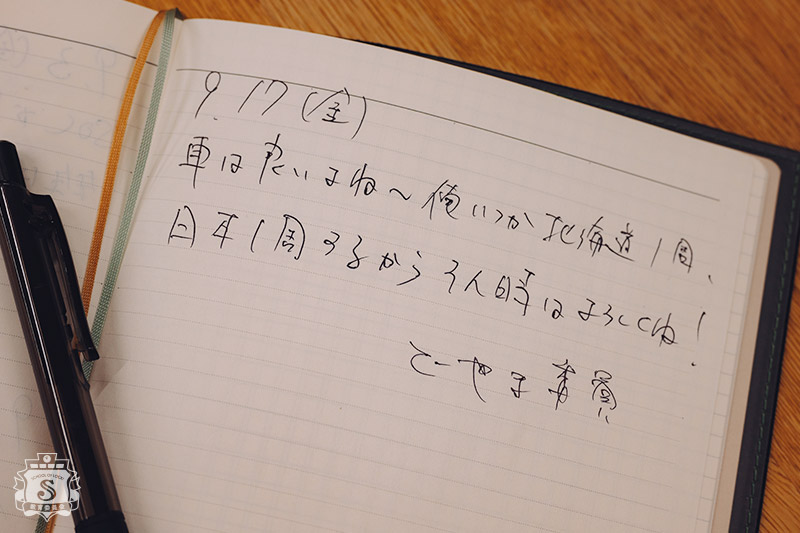 9.17(金)
車は良いよね〜俺いつか北海道1周、
日本1周するからそん時はよろしくね!
とーやま委員
SCHOOL OF LOCK!
S